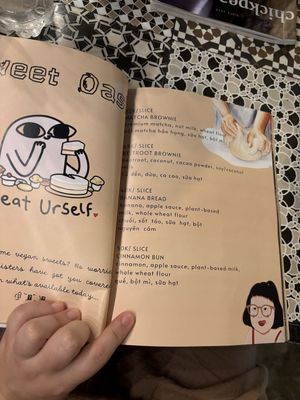 chickpea
weet Oas
eat Urself.
me vegan sweets? No worries
isters have got you covered
what's available today...
K/ SLICE
MATCHA BROWNIE
premium matcha, nut milk, wheat
bột matcha hảo hạng, sữa hạt, bột
K/ SLICE
TROOT BROWNIE
rroot, coconut, cacao powder, soy/coconut
dền, dừa, ca cao, sữa hạt
K/ SLICE
BANANA BREAD
banana, apple sauce, plant-based
milk, whole wheat flour
chuối, sốt táo, sữa hạt, bột
nguyên cám
50K/ SLICE
CINNAMON BUN
cinnamon, apple sauce, plant-based milk,
whole wheat flour
quế, bột mì, sữa hạt